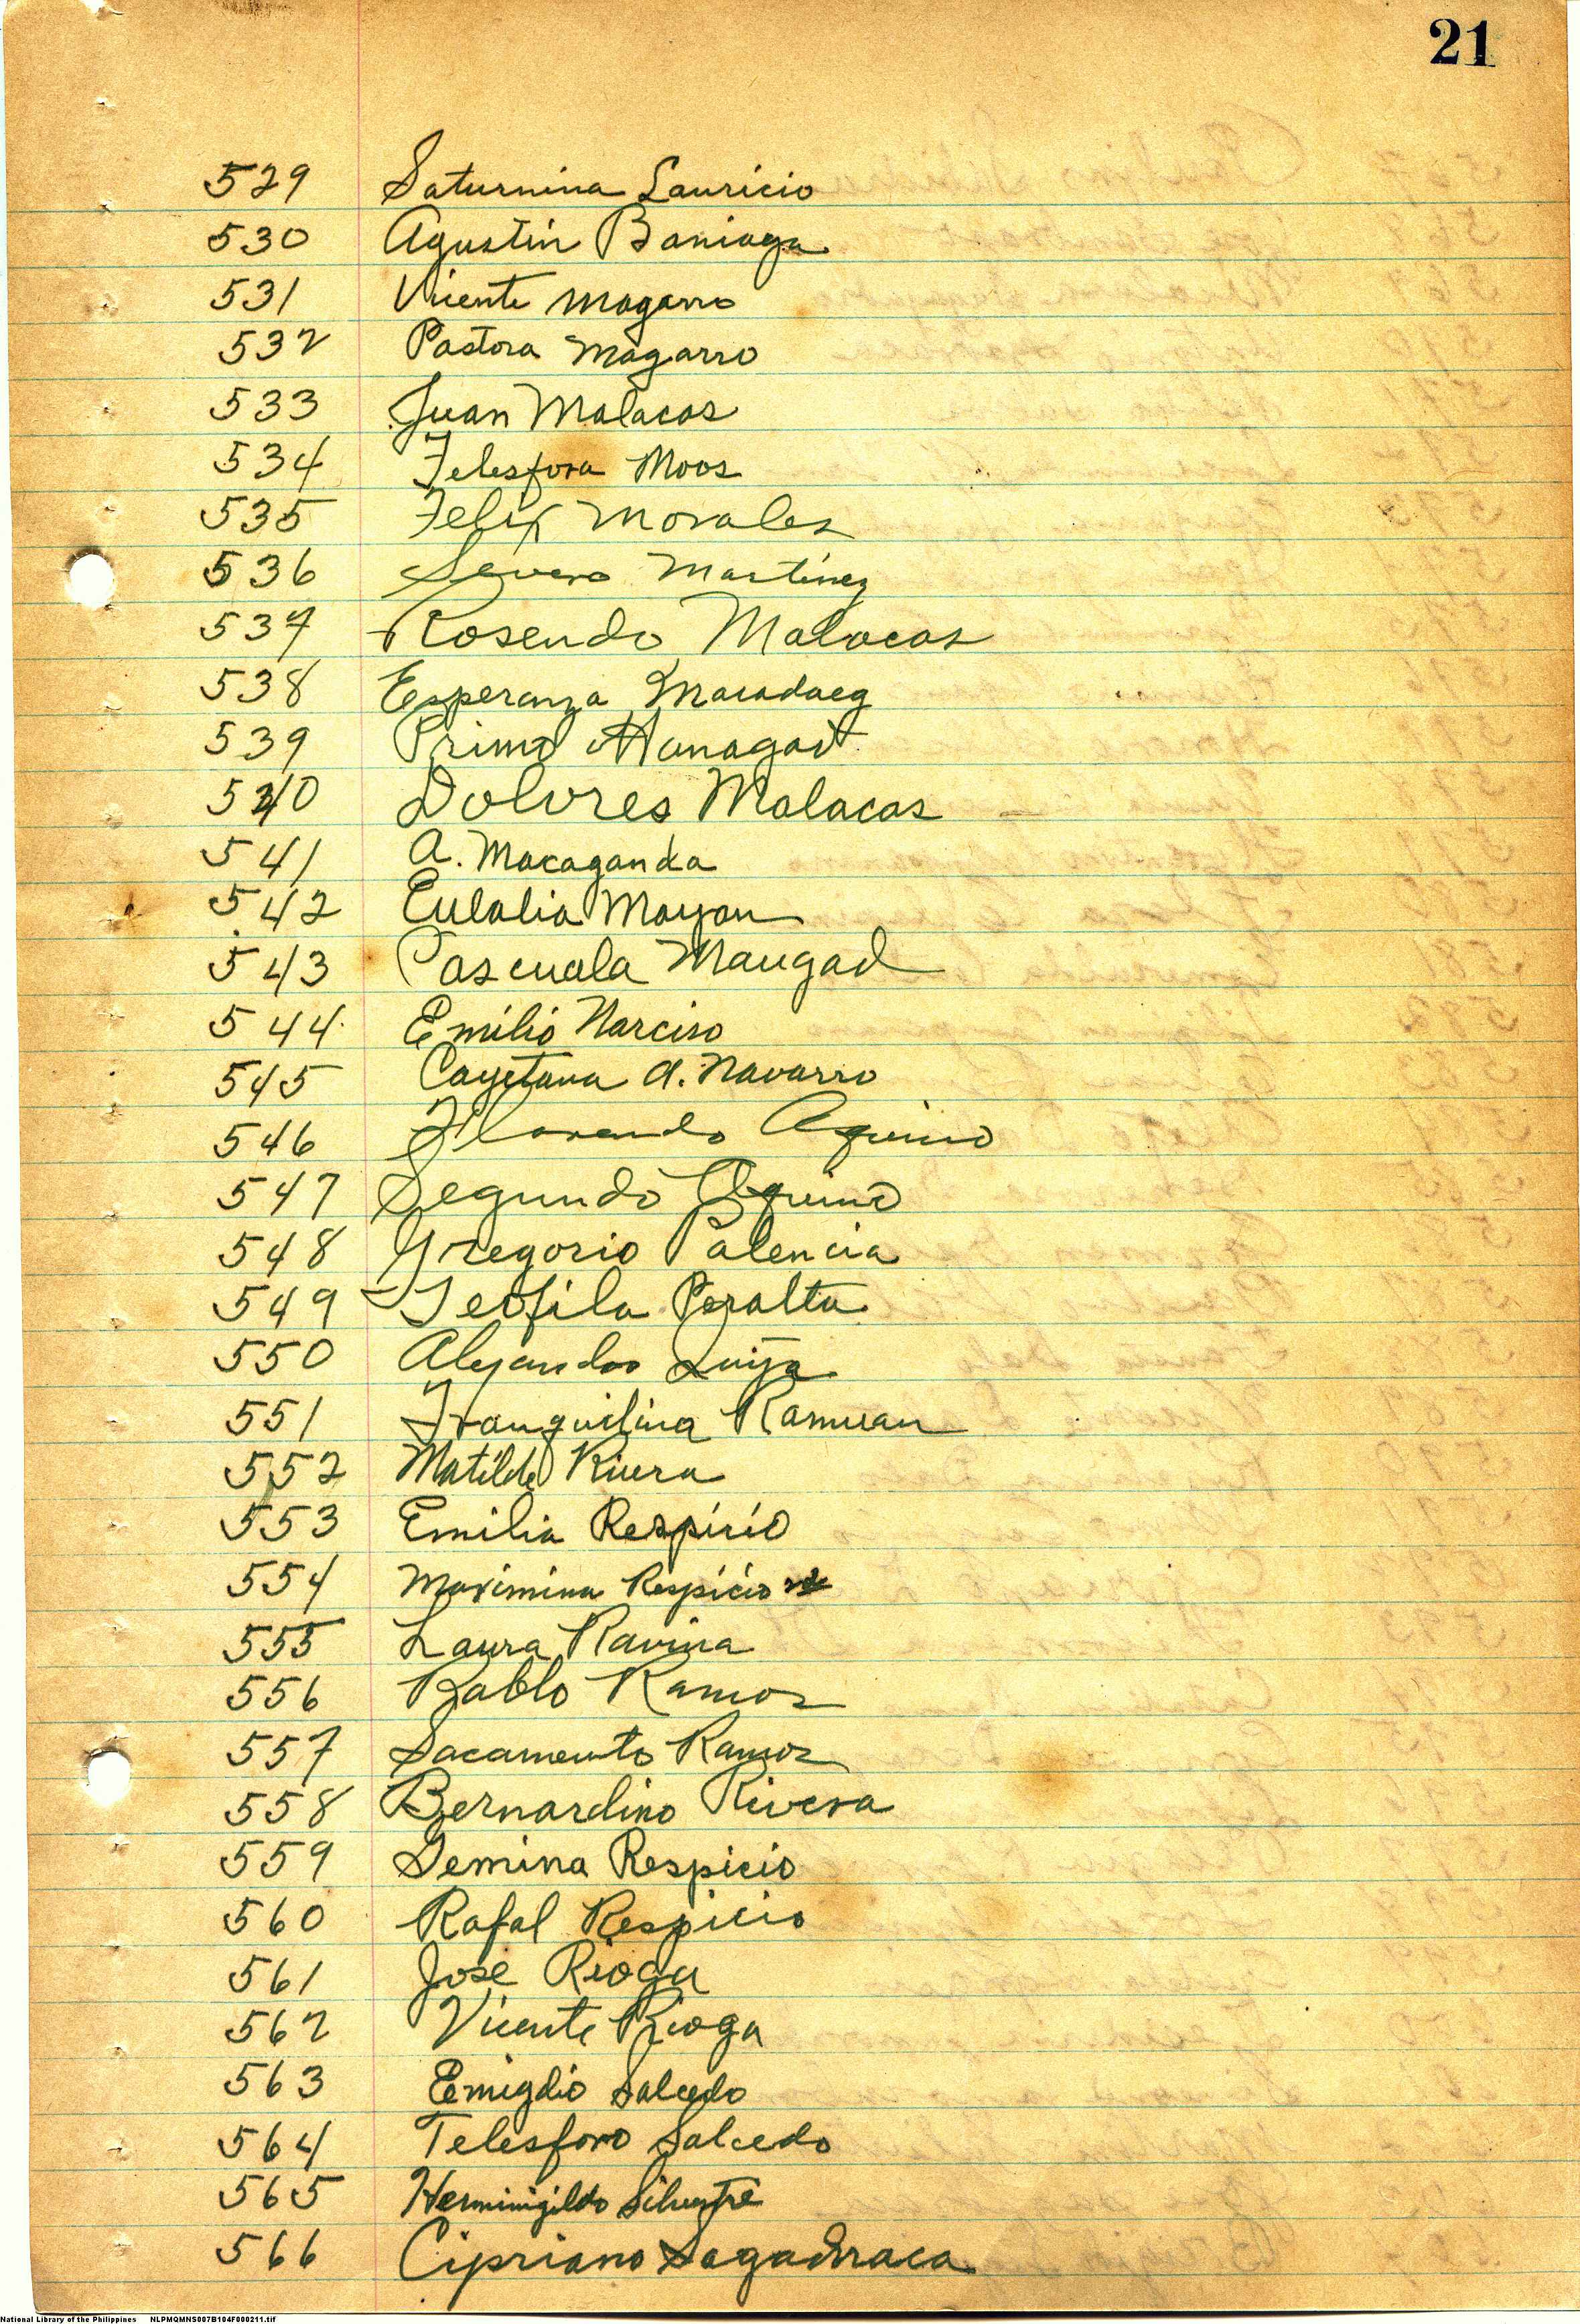 21
529 Saturnina Lauricio
530 Agustin Baniaga
531 Vicente Magarro
532 Pastora Magarro
533 Juan Malacas
534 Telesfora Moos
535 Felix Morales
536 Severo Martinez
537 Rosendo Malacas
538 Esperanza Macadaeg
539 Primo Managad
540 Dolores Malacas
541 A. Macaganda
542 Eulalia Mayan
543 Pascuala Maugad
544 Emilio Narciso
545 Cayetana A. Navarro
546 Aquino
547 Segundo Aquino
548 Gregorio Palencia
549 Teofila Peralta
550 Alejandro
551 Tranquilina Ramuan
552 Matilde Rivera
553 Emilia Respicio
554 Maximina Respicio
555 Laura Ravina
556 Pablo Ramos
557 Sacamento Ramos
558 Bernardino Rivera
559 Semina Respicio
560 Rafal Respicio
561 Jose Rioga
562 Vicente Rioga
563 Eemigdio Salcedo
564 Telesforo Salcedo
565 Herminigildo Silvestre
566 Cipriano Sagadraca
National Library of the Philippines NLPMQMNS007B104F000211.tif